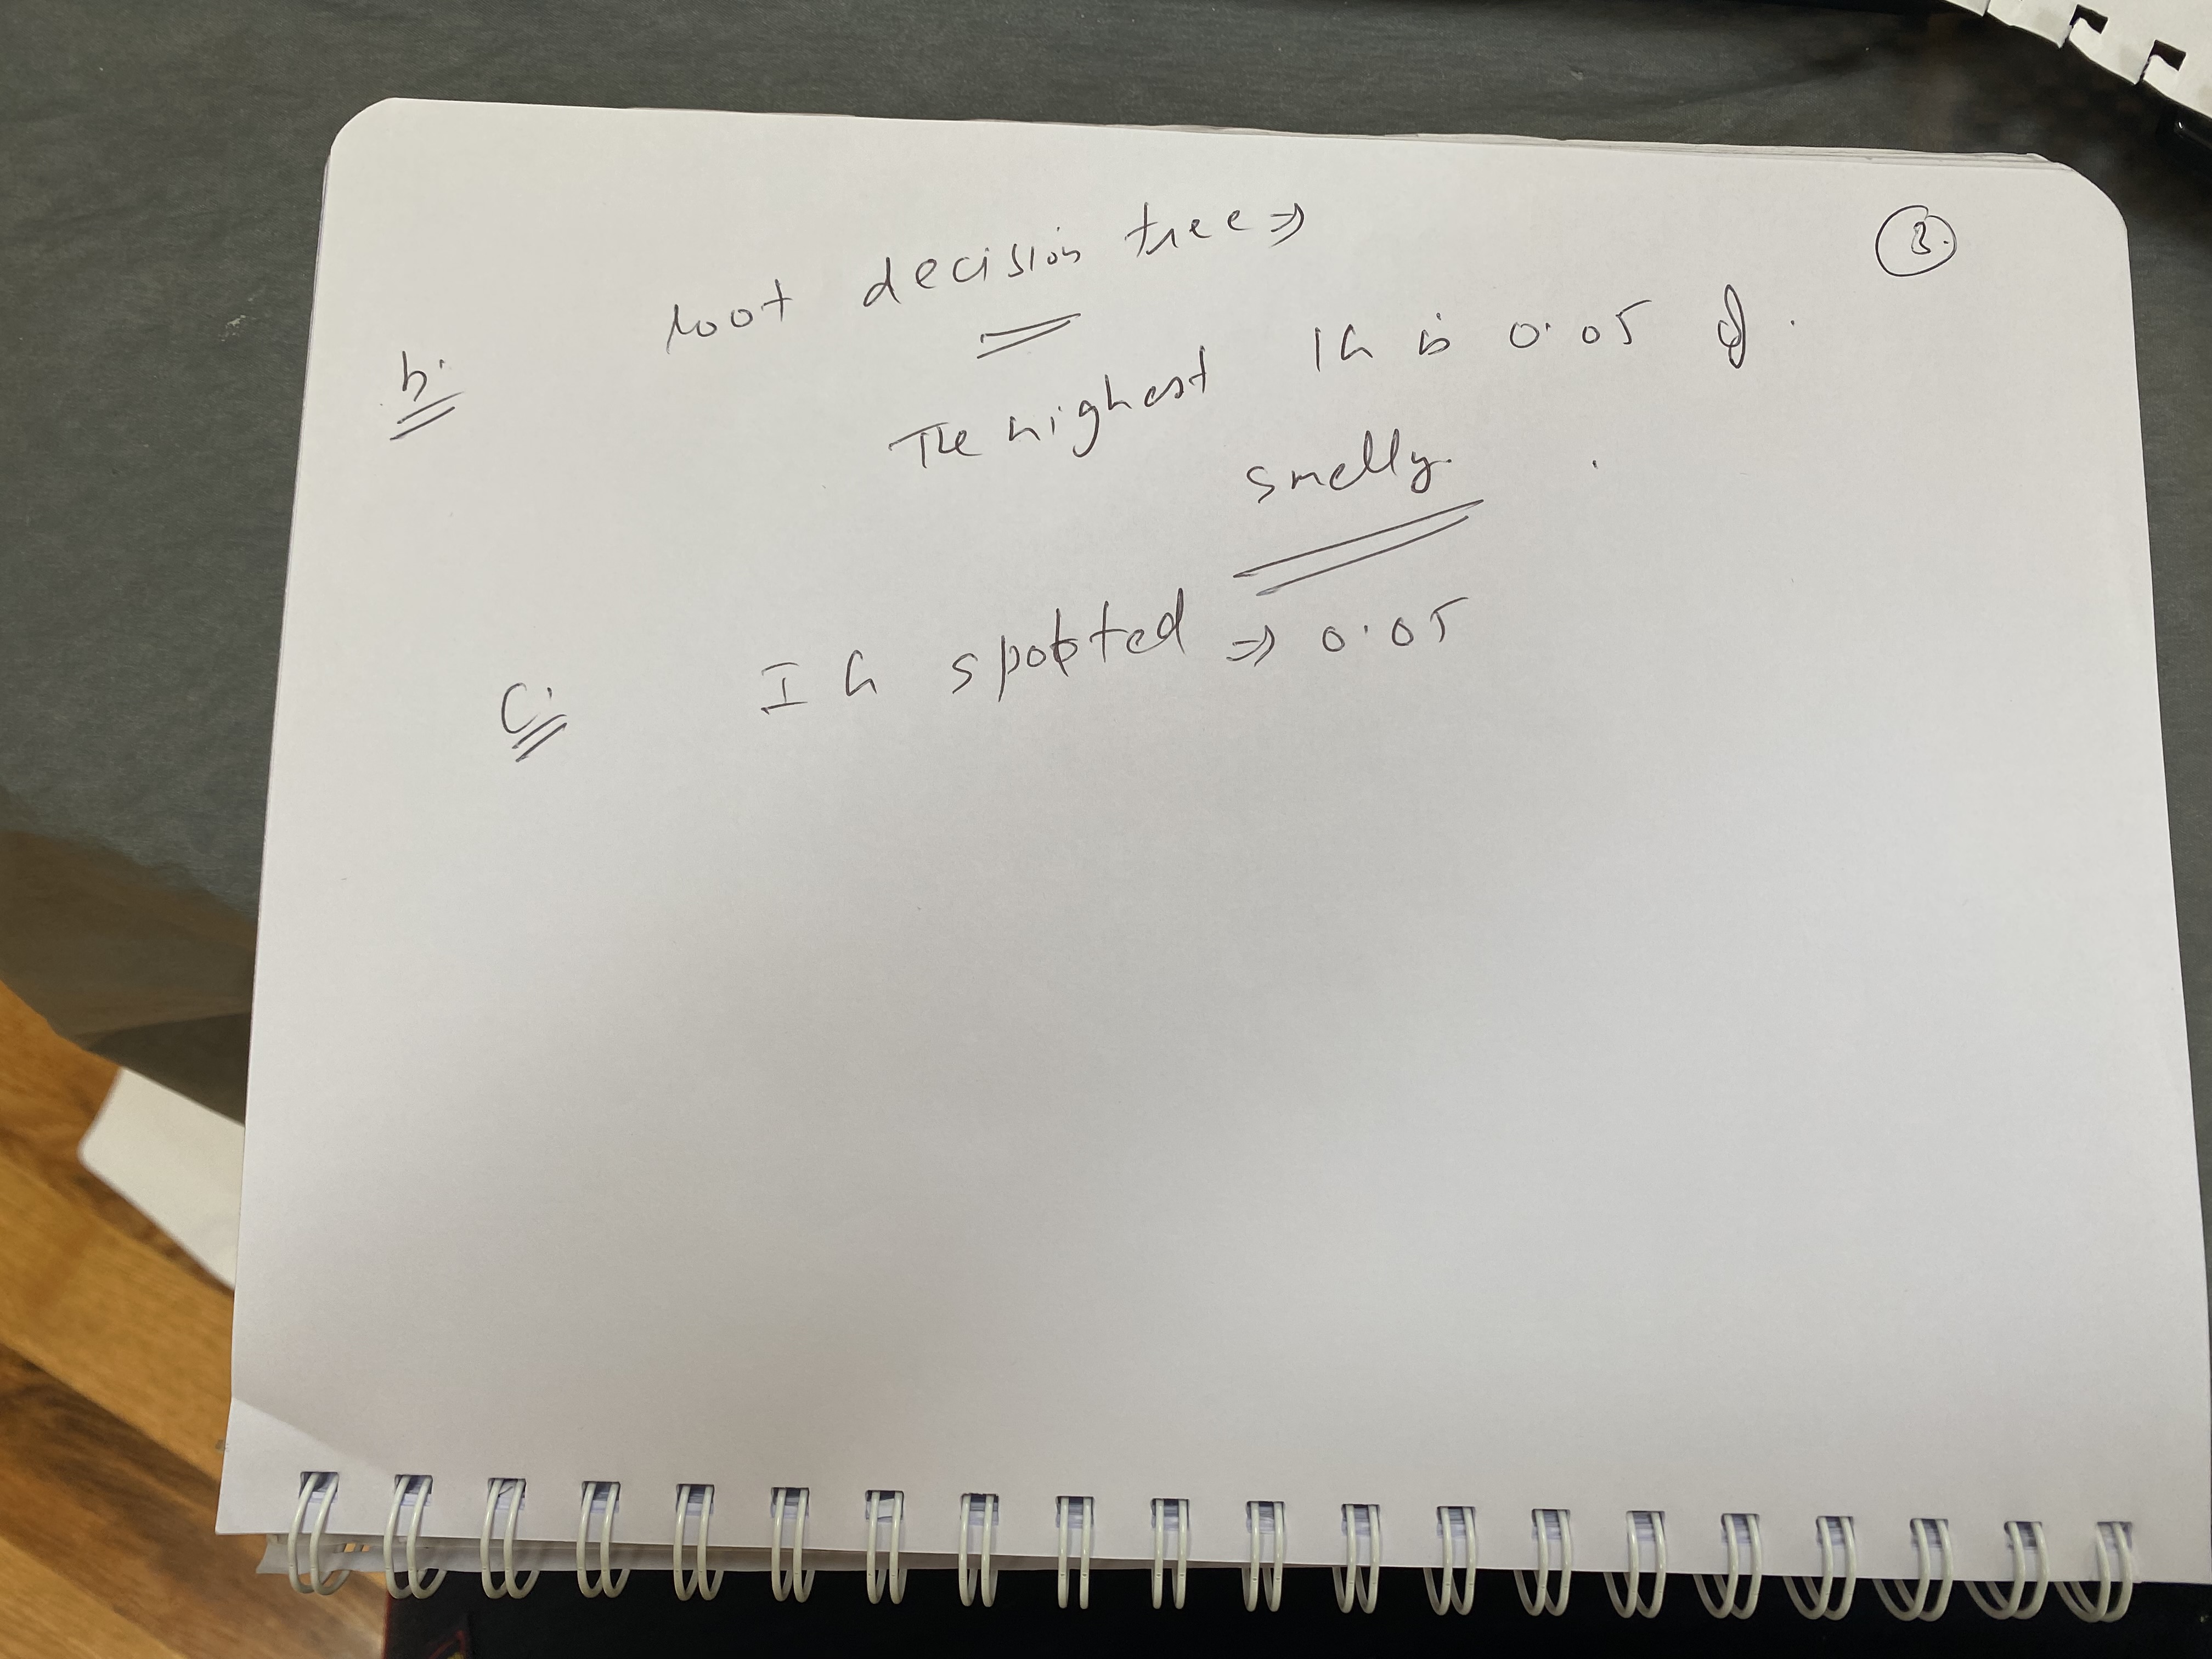 3.
b. root decision tree ⇒
The highest IG is 0.05 of.
smelly.
C. IG spotted ⇒ 0.05